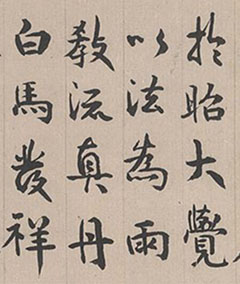 於昭大覺
以法為雨
教流真丹
白馬發祥